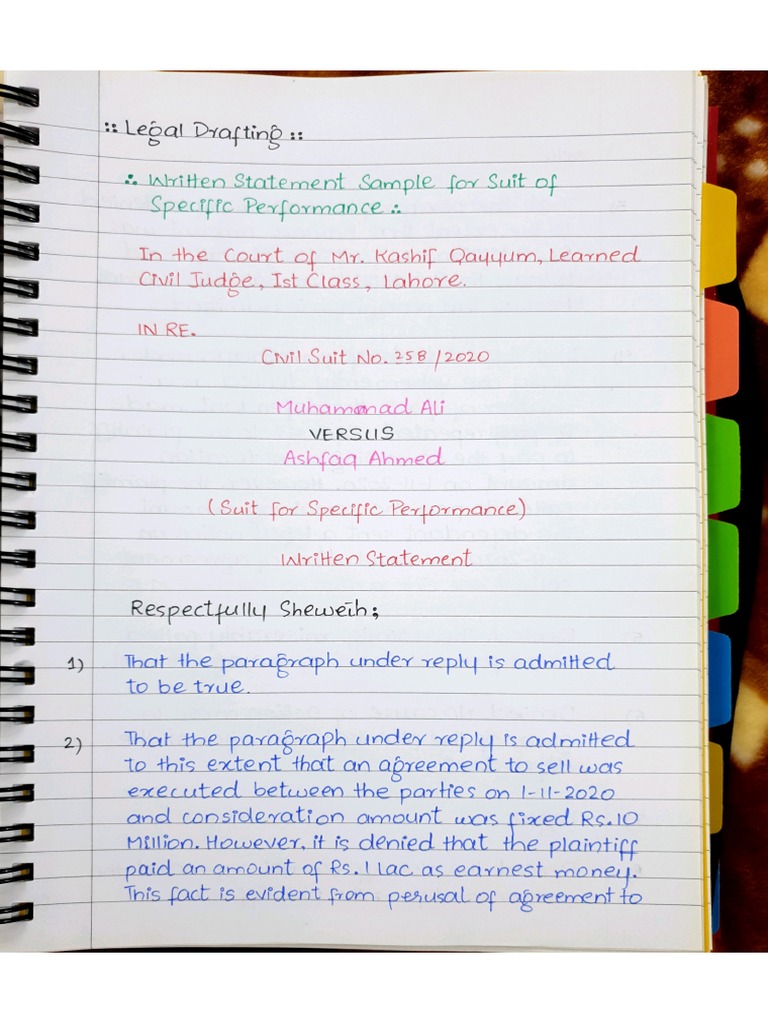 :: Legal Drafting ::
∴ Written Statement Sample for Suit of
Specific Performance ∴
In the Court of Mr. Kashif Qayyum, Learned
Civil Judge, Ist Class, Lahore.
IN RE.
Civil Suit No. 258/2020
Muhammad Ali
VERSUS
Ashfaq Ahmed
(Suit for Specific Performance)
Written Statement
Respectfully Sheweth;
1) That the paragraph under reply is admitted
to be true.
2) That the paragraph under reply is admitted
to this extent that an agreement to sell was
executed between the parties on 1-11-2020
and consideration amount was fixed Rs.10
Million. However, it is denied that the plaintiff
paid an amount of Rs. 1 lac as earnest money.
This fact is evident from perusal of agreement to